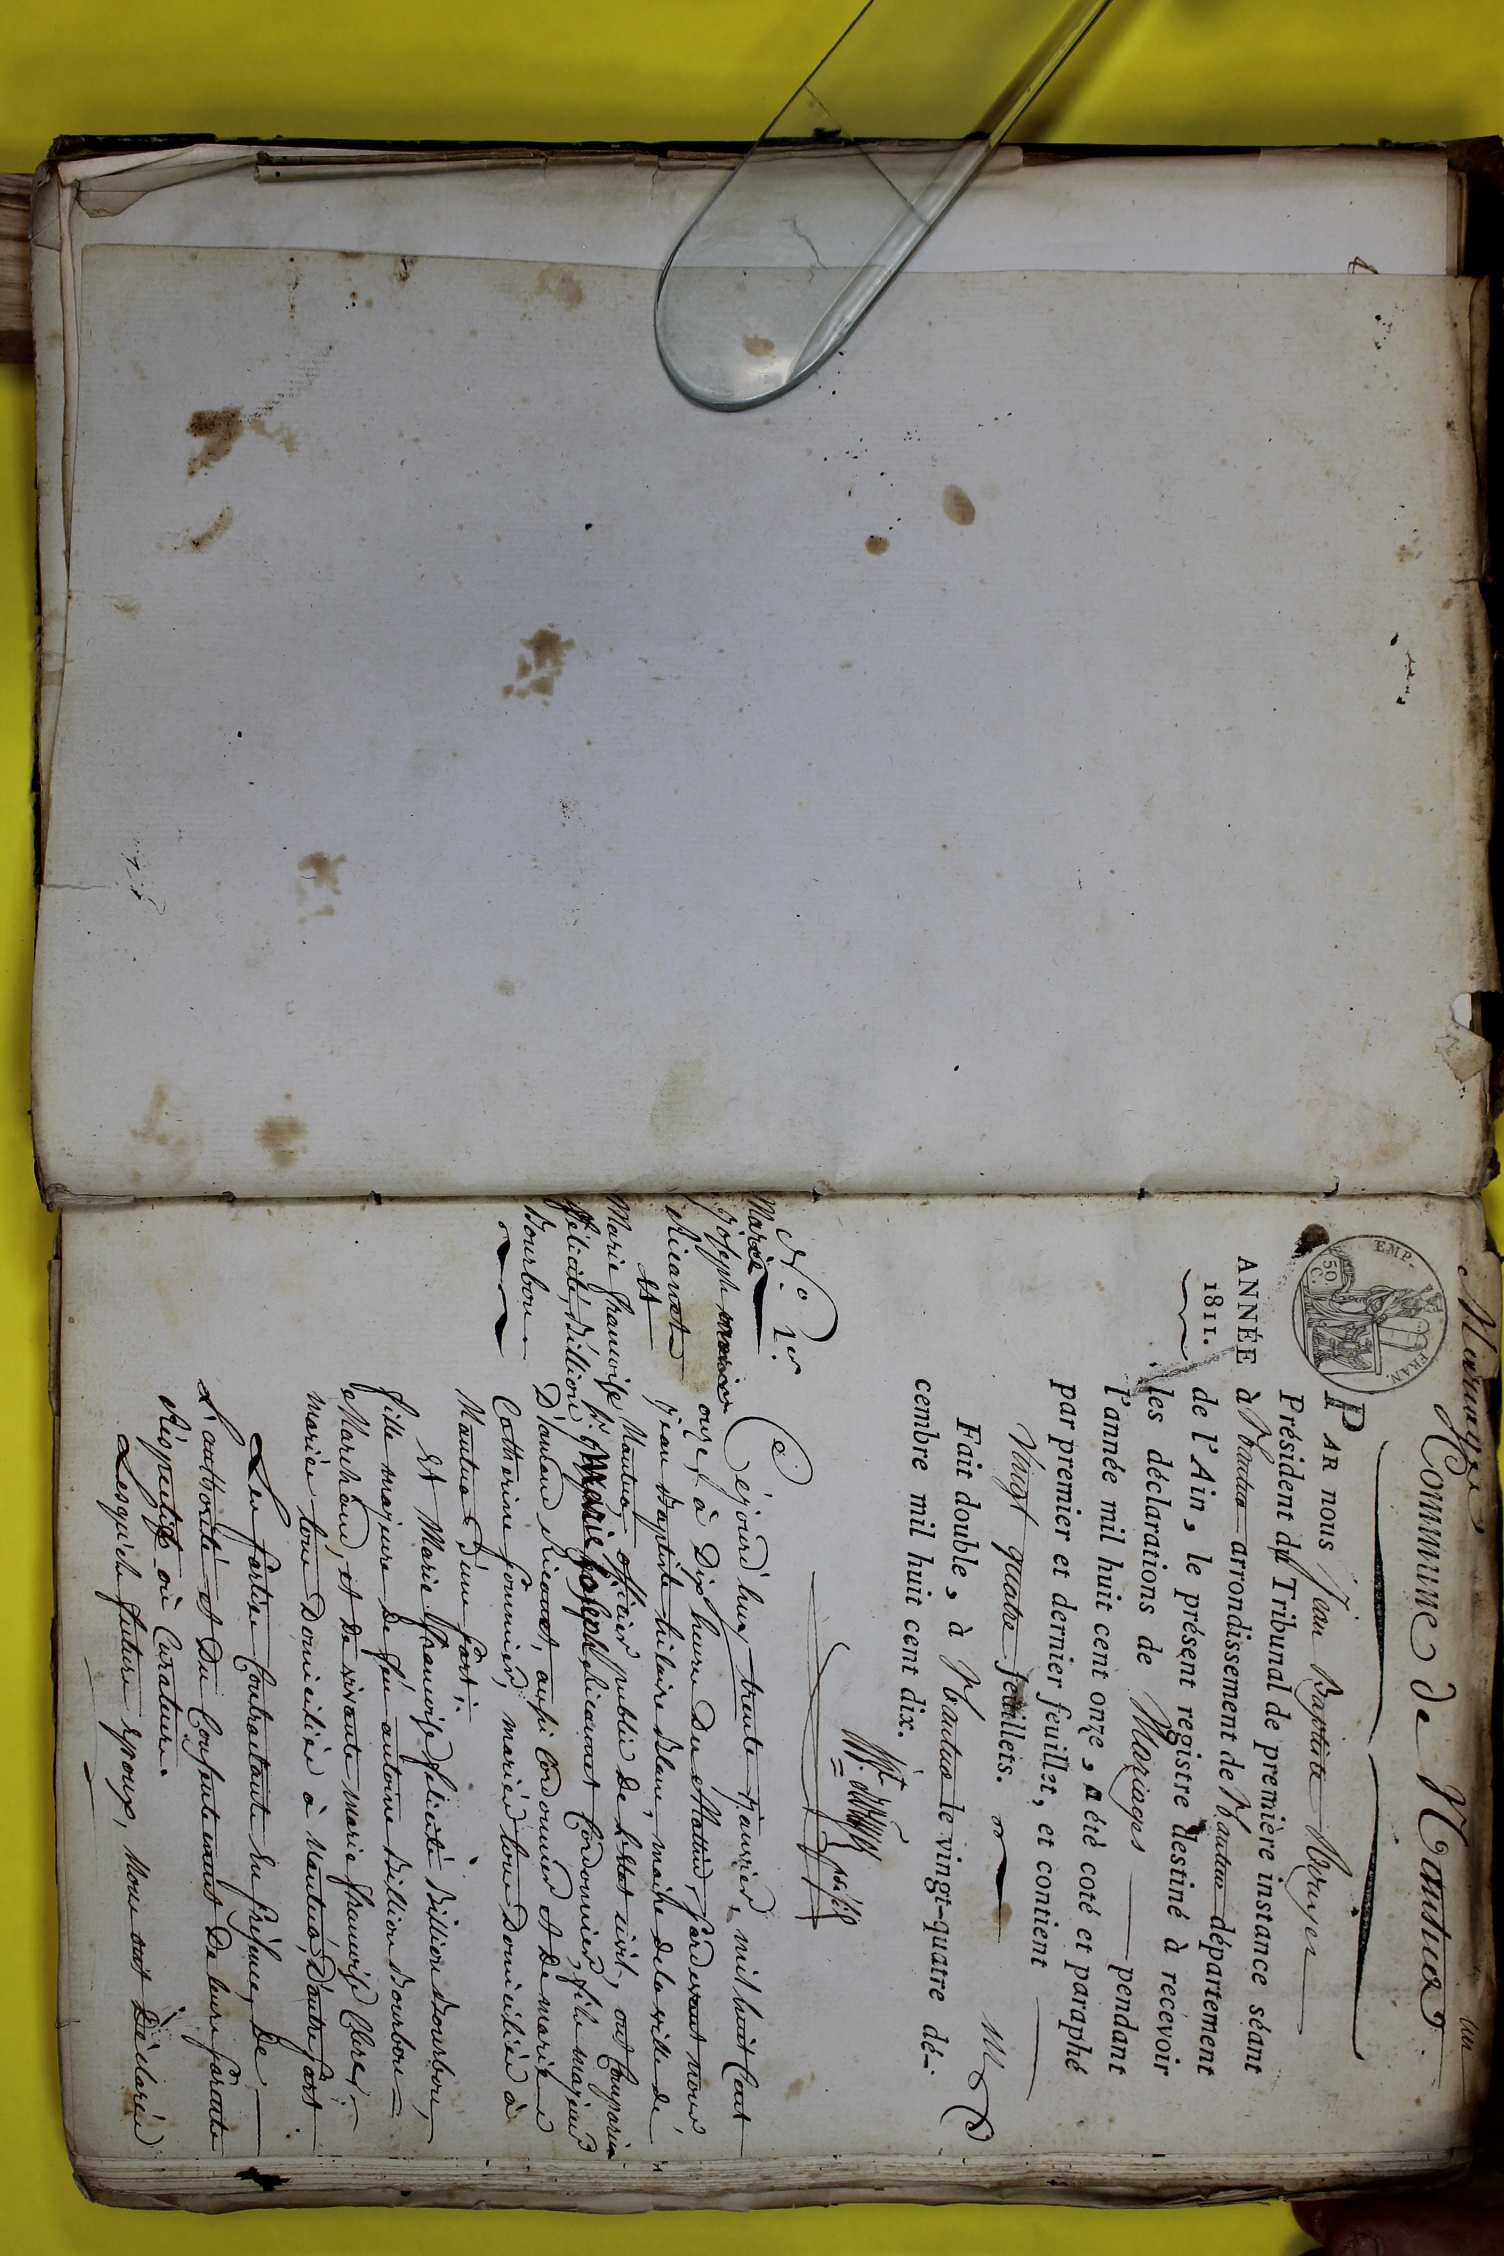 un
Mariages
Commune de Nantua
EMP. FRAN.
50 C.
ANNÉE
1811.
PAR nous Jean Baptiste
Président du Tribunal de première instance séant
à Nantua arrondissement de Nantua département
de l'Ain, le présent registre destiné à recevoir
les déclarations de Mariages pendant
l'année mil huit cent onze, a été coté et paraphé
par premier et dernier feuillet, et contient
Vingt quatre feuillets.
Fait double, à Nantua le vingt-quatre dé-
cembre mil huit cent dix.
N.º 1er
Joseph
et
Marie françoise
félicité Billion
Bourbon
Cejourd'huy trente Janvier, mil huit Cent
onze, à Dix heures du Matin, pardevant nous
Jean Baptiste hilaire Blanc, maire de la ville de
Nantua, officier public de l'état civil, ont Comparu
Sr Marie Joseph Cordonnier, fils majeur
D'andré aussi Cordonnier et de marie
Catherine mariés tous Domiciliés à
Nantua D'une part;
Et Marie françoise félicité Billion Bourbon,
fille majeure de feu antoine Billion Bourbon
Marchand, et de vivante marie françoise
mariée tous Domiciliés à Nantua, D'autre part
Les parties Contractantes En présence, De
L'authorité et Du Consentement De leurs parents
Respectifs où Curateurs.
Lesquels futurs époux, Nous ont Déclaré